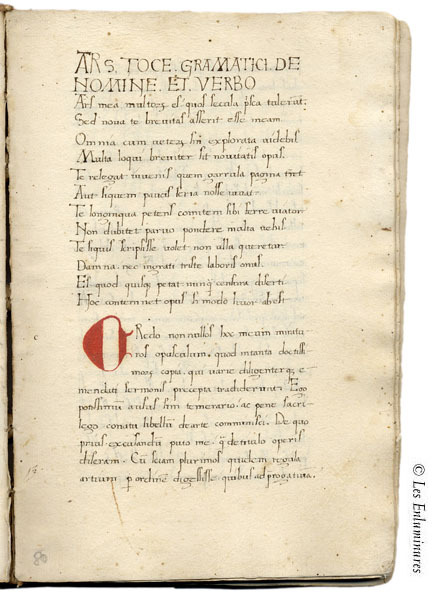 ARS. FOCE. GRAMATICI. DE
NOMINE. ET. VERBO
Ars mea multoꝝ es quos secula pſca tulerūt:
Sed noua te breuitas asserit esse meam.
Omnia cum ueteꝝ sīt explorata uidebis
Multa loqui breuiter sit nouitatis opus.
Te relegat iuuenis quem garrula pagina tr̄ret
Aut siquem paucis seria nosse iuuat.
Te longinqua petens comitem sibi ferre uiator
Non dubitet paruo pondere multa uehis
Te siquis scripsisse uolet non ulla queretur
Damna nec ingrati triste laboris onus.
Est quod quisqꝫ petat nunqͣ censura diserti
Hoc contemnet opus si modo liuor abest
CRedo nonnullos hoc meum miratu
ros opusculum, quod intanta doctissi
moꝝ copia, qui uarie diligenterqꝫ e
mendati sermonis precepta tradiderunt. Ego
potissimū ausus sim temerario ac pene sacri
lego conatu libellū de arte comminisci. De quo
prius excusandū puto me qͣ̄ detitulo operis
disseram. Cū sciam plurimos quidem regulas
artium p ordinē digessisse quibus ad prog̣atiuā.
80
© Les Enluminures